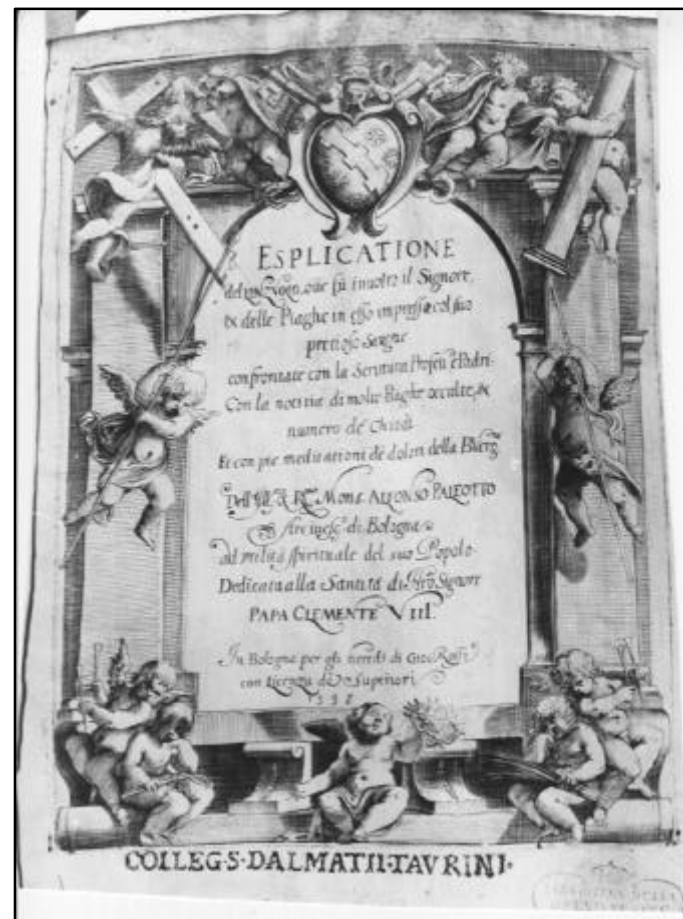 ESPLICATIONE
del oue fù inuolto il Signore,
& delle Piaghe in esso impresse col suo
pretioso Sangue
confrontate con la Scrittura Profeti e Padri.
Con la notitia di molte Piaghe occulte, &
numero de Chiodi
Et con pie meditationi de dolori della
Mons. ALFONSO PALEOTTO
di Bologna
ad vtilità spirituale del suo Popolo.
Dedicata alla Santità di Signore
PAPA CLEMENTE VIII.
In Bologna per gli heredi di Gio: Rossi
con licenza de Superiori
COLLEG·S·DALMATII·TAVRINI·